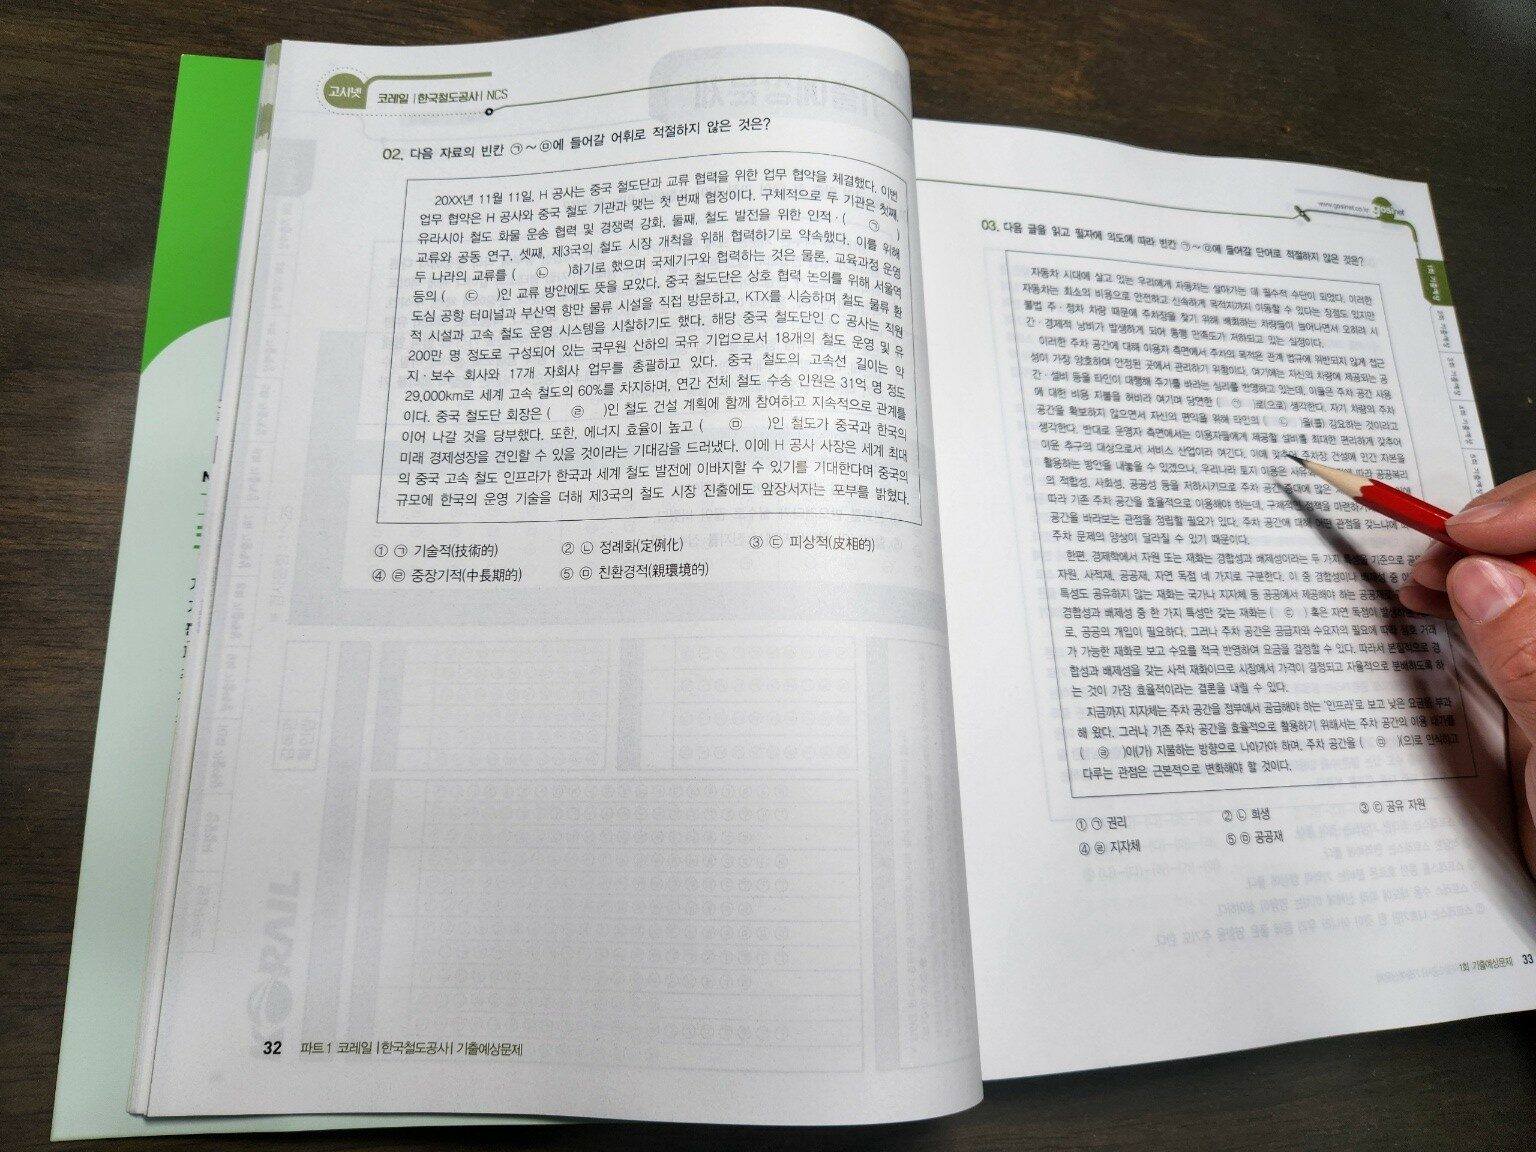 고시넷 코레일 |한국철도공사| NCS
02. 다음 자료의 빈칸 ㉠~㉤에 들어갈 어휘로 적절하지 않은 것은?
20XX년 11월 11일, H 공사는 중국 철도단과 교류 협력을 위한 업무 협약을 체결했다. 이번
업무 협약은 H 공사와 중국 철도 기관과 맺는 첫 번째 협정이다. 구체적으로 두 기관은 첫째,
유라시아 철도 화물 운송 협력 및 경쟁력 강화, 둘째, 철도 발전을 위한 인적·( ㉠ )
교류와 공동 연구, 셋째, 제3국의 철도 시장 개척을 위해 협력하기로 약속했다. 이를 위해
두 나라의 교류를 ( ㉡ )하기로 했으며 국제기구와 협력하는 것은 물론, 교육과정 운영
등의 ( ㉢ )인 교류 방안에도 뜻을 모았다. 중국 철도단은 상호 협력 논의를 위해 서울역
도심 공항 터미널과 부산역 항만 물류 시설을 직접 방문하고, KTX를 시승하며 철도 물류 환
적 시설과 고속 철도 운영 시스템을 시찰하기도 했다. 해당 중국 철도단인 C 공사는 직원
200만 명 정도로 구성되어 있는 국무원 산하의 국유 기업으로서 18개의 철도 운영 및 유
지·보수 회사와 17개 자회사 업무를 총괄하고 있다. 중국 철도의 고속선 길이는 약
29,000km로 세계 고속 철도의 60%를 차지하며, 연간 전체 철도 수송 인원은 31억 명 정도
이다. 중국 철도단 회장은 ( ㉣ )인 철도 건설 계획에 함께 참여하고 지속적으로 관계를
이어 나갈 것을 당부했다. 또한, 에너지 효율이 높고 ( ㉤ )인 철도가 중국과 한국의
미래 경제성장을 견인할 수 있을 것이라는 기대감을 드러냈다. 이에 H 공사 사장은 세계 최대
의 중국 고속 철도 인프라가 한국과 세계 철도 발전에 이바지할 수 있기를 기대한다며 중국의
규모에 한국의 운영 기술을 더해 제3국의 철도 시장 진출에도 앞장서자는 포부를 밝혔다.
① ㉠ 기술적(技術的) ② ㉡ 정례화(定例化) ③ ㉢ 피상적(皮相的)
④ ㉣ 중장기적(中長期的) ⑤ ㉤ 친환경적(親環境的)
32 파트1 코레일 |한국철도공사| 기출예상문제
www.gosinet.co.kr gosinet
03. 다음 글을 읽고 필자에 의도에 따라 빈칸 ㉠~㉤에 들어갈 단어로 적절하지 않은 것은?
자동차 시대에 살고 있는 우리에게 자동차는 살아가는 데 필수적 수단이 되었다. 이러한
자동차는 최소의 비용으로 안전하고 신속하게 목적지까지 이동할 수 있다는 장점도 있지만
불법 주·정차 차량 때문에 주차장을 찾기 위해 배회하는 차량들이 늘어나면서 오히려 시
간·경제적 낭비가 발생하게 되어 통행 만족도가 저하되고 있는 실정이다.
이러한 주차 공간에 대해 이용자 측면에서 주차의 목적은 관계 법규에 위반되지 않게 접근
성이 가장 양호하며 안정된 곳에서 관리하기 위함이다. 여기에는 자신의 차량에 제공되는 공
간·설비 등을 타인이 대행해 주기를 바라는 심리를 반영하고 있는데, 이들은 주차 공간 사용
에 대한 비용 지불을 허비라 여기며 당연한 ( ㉠ )로(으로) 생각한다. 자기 차량의 주차
공간을 확보하지 않으면서 자신의 편익을 위해 타인의 ( ㉡ )을(를) 강요하는 것이라고
생각한다. 반대로 운영자 측면에서는 이용자들에게 제공할 설비를 최대한 편리하게 갖추어
이윤 추구의 대상으로서 서비스 산업이라 여긴다. 이에 맞추어 주차장 건설에 민간 자본을
활용하는 방안을 내놓을 수 있겠으나, 우리나라 토지 이용은 따라 공공복리
의 적합성, 사회성, 공공성 등을 저하시키므로 주차 공간 증대에 많은
따라 기존 주차 공간을 효율적으로 이용해야 하는데, 구체적인 정책을 마련하기
공간을 바라보는 관점을 정립할 필요가 있다. 주차 공간에 대해 어떤 관점을 갖느냐에
주차 문제의 양상이 달라질 수 있기 때문이다.
한편, 경제학에서 자원 또는 재화는 경합성과 배제성이라는 두 가지 특성을 기준으로
자원, 사적재, 공공재, 자연 독점 네 가지로 구분한다. 이 중 경합성이나 배제성 중
특성도 공유하지 않는 재화는 국가나 지자체 등 공공에서 제공해야 하는
경합성과 배제성 중 한 가지 특성만 갖는 재화는 ( ㉢ ) 혹은 자연 독점이
로, 공공의 개입이 필요하다. 그러나 주차 공간은 공급자와 수요자의 필요에 따라 거래
가 가능한 재화로 보고 수요를 적극 반영하여 요금을 결정할 수 있다. 따라서 본질적으로 경
합성과 배제성을 갖는 사적 재화이므로 시장에서 가격이 결정되고 자율적으로 분배하도록 하
는 것이 가장 효율적이라는 결론을 내릴 수 있다.
지금까지 지자체는 주차 공간을 정부에서 공급해야 하는 '인프라'로 보고 낮은 요금을 부과
해 왔다. 그러나 기존 주차 공간을 효율적으로 활용하기 위해서는 주차 공간의 이용 대가를
( ㉣ )이(가) 지불하는 방향으로 나아가야 하며, 주차 공간을 ( ㉤ )(으)로 인식하고
다루는 관점은 근본적으로 변화해야 할 것이다.
① ㉠ 권리 ② ㉡ 희생 ③ ㉢ 공유 자원
④ ㉣ 지자체 ⑤ ㉤ 공공재
1회 기출예상문제 33